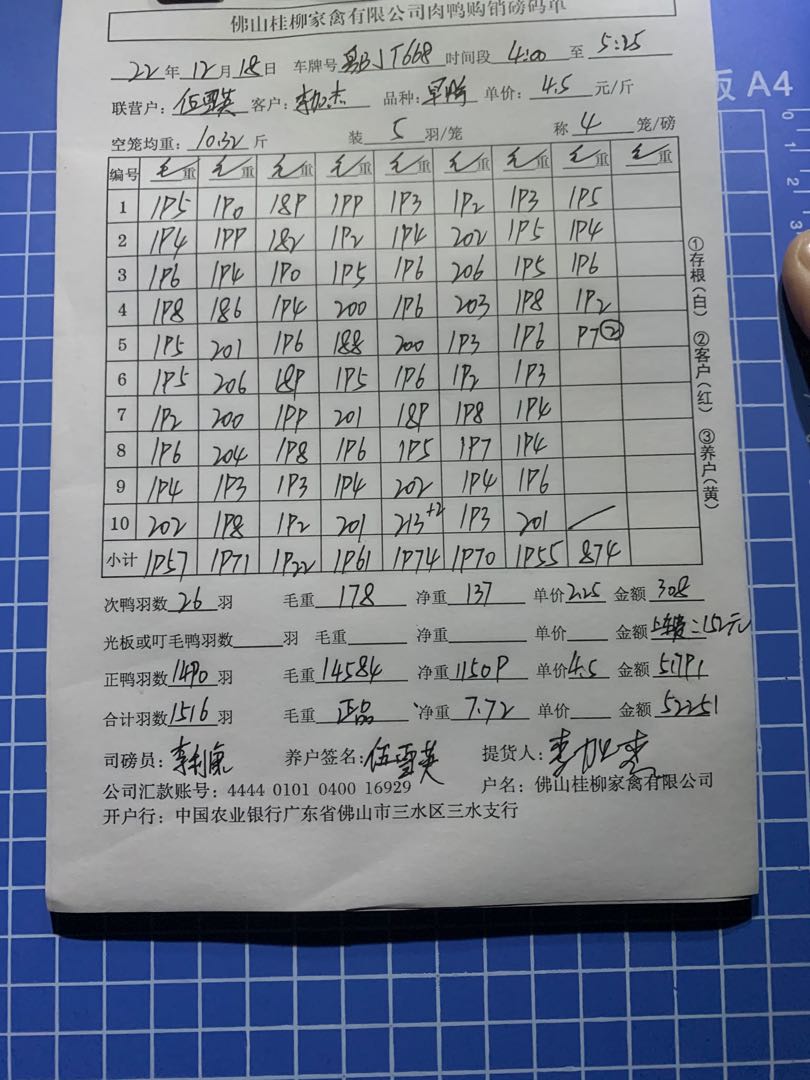 佛山桂柳家禽有限公司肉鸭购销磅码单
22年12月18日 车牌号 粤BJT668 时间段 4:00 至 5:25
联营户:伍雪英 客户:李加杰 品种: 单价:4.5元/斤
空笼均重:10.32斤 装5羽/笼 称4笼/磅
编号 毛重 毛重 毛重 毛重 毛重 毛重 毛重 毛重 毛重
1 195 190 189 199 193 192 193 195
2 194 199 182 192 194 202 195 194
3 196 194 190 195 196 206 195 196
4 198 186 194 200 196 203 198 192
5 195 201 196 188 200 193 196 97②
6 195 206 189 195 196 192 193
7 192 200 199 201 189 198 194
8 196 204 198 196 195 197 194
9 194 193 193 194 202 194 196
10 202 198 192 201 213+2 193 201
小计 1957 1971 1922 1961 1974 1970 1955 874
次鸭羽数26羽 毛重178 净重137 单价2.25 金额308
光板或叮毛鸭羽数 羽 毛重 净重 单价 金额上车费=152元
正鸭羽数1490羽 毛重14584 净重11509 单价4.5 金额51791
合计羽数1516羽 毛重正品 净重7.72 单价 金额52251
司磅员:李利康 养户签名:伍雪英 提货人:李加杰
公司汇款账号:4444 0101 0400 16929 户名:佛山桂柳家禽有限公司
开户行:中国农业银行广东省佛山市三水区三水支行
①存根(白) ②客户(红) ③养户(黄)
板 A4
0
1
2
3